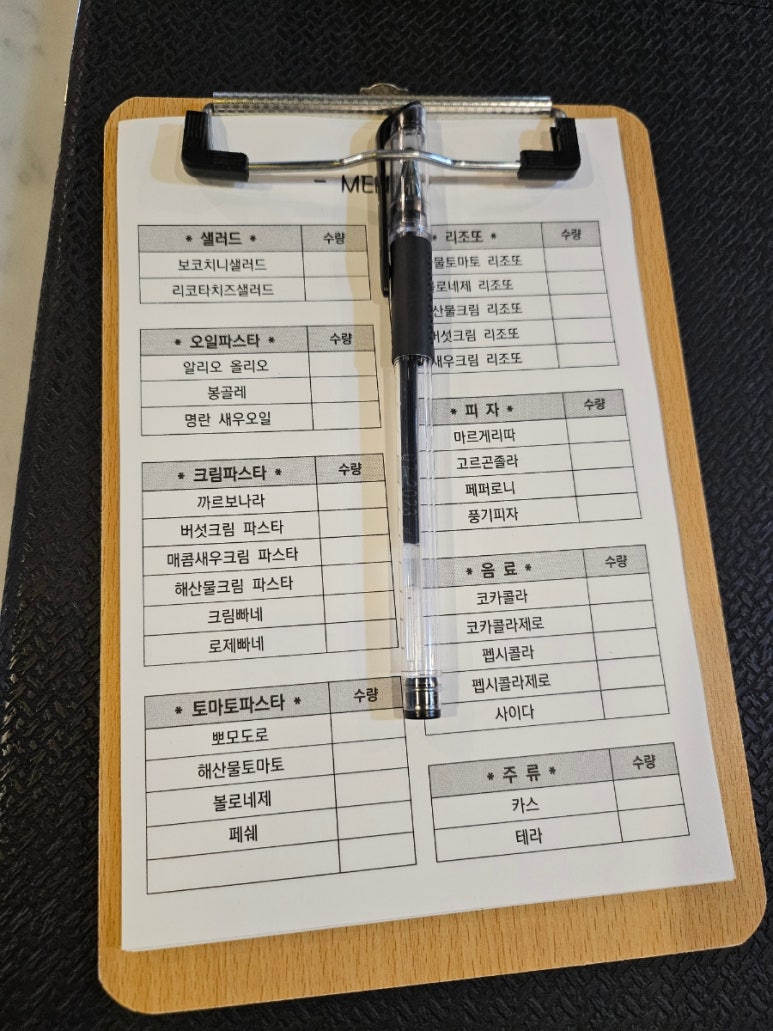 - MEN
* 샐러드 * 수량
보코치니샐러드
리코타치즈샐러드
* 오일파스타 * 수량
알리오 올리오
봉골레
명란 새우오일
* 크림파스타 * 수량
까르보나라
버섯크림 파스타
매콤새우크림 파스타
해산물크림 파스타
크림빠네
로제빠네
* 토마토파스타 * 수량
뽀모도로
해산물토마토
볼로네제
페쉐
* 리조또 * 수량
물토마토 리조또
로네제 리조또
산물크림 리조또
버섯크림 리조또
새우크림 리조또
* 피 자 * 수량
마르게리따
고르곤졸라
페퍼로니
풍기피자
* 음 료 * 수량
코카콜라
코카콜라제로
펩시콜라
펩시콜라제로
사이다
* 주 류 * 수량
카스
테라